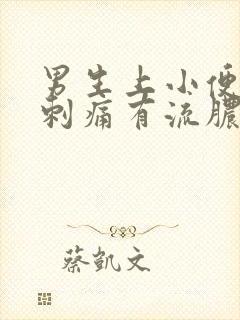 男生上小便
刺痛有流膿
蔡凱文